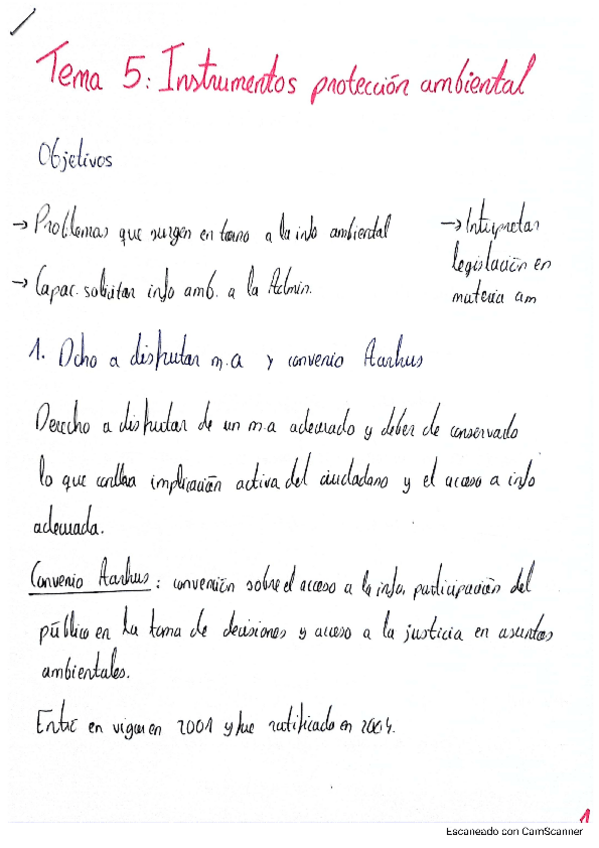 Tema 5: Instrumentos protección ambiental
Objetivos
→ Problemas que surgen en torno a la info ambiental
→ Capac. solicitar info amb. a la Admin.
→ Interpretar
legislación en
materia am
1. Dcho a disfrutar m.a y convenio Aarhus
Derecho a disfrutar de un m.a adecuado y deber de conservarlo
lo que conlleva implicación activa del ciudadano y el acceso a info
adecuada.
Convenio Aarhus: convención sobre el acceso a la info, participación del
público en la toma de decisiones y acceso a la justicia en asuntos
ambientales.
Entró en vigor en 2001 y fue ratificado en 2004.
1
Escaneado con CamScanner